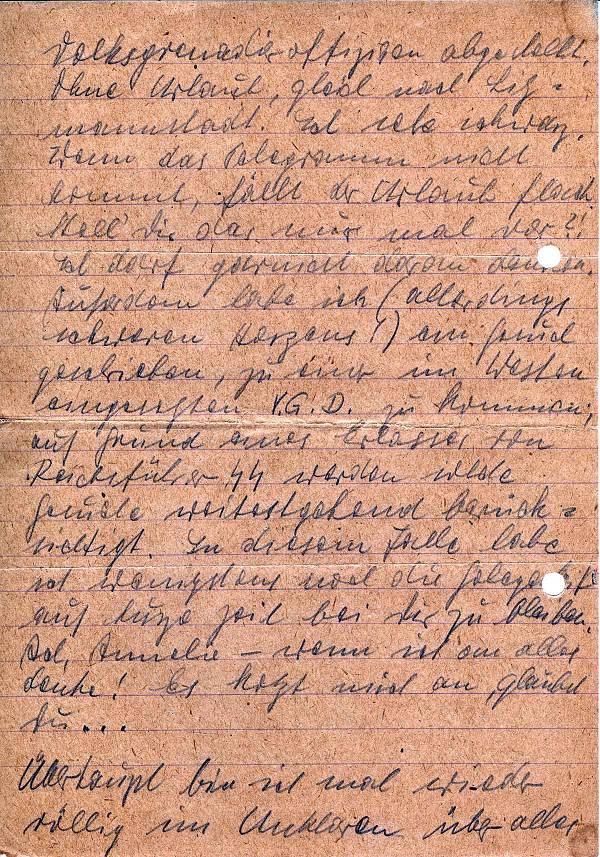 Volksgrenadieroffizieren abgestellt.
Ohne Urlaub, gleich nach Litz=
mannstadt. Ich sehe schwarz.
Wenn das Telegramm nicht
kommt, fällt der Urlaub flach.
Stell' Dir das nur mal vor?!
Ich darf garnicht daran denken.
Außerdem habe ich (allerdings
schweren Herzens!) ein Gesuch
geschrieben, zu einer im Westen
eingesetzten V.G.D. zu kommen,
auf Grund eines Erlasses vom
Reichsführer SS werden solche
Gesuche weitestgehend berück=
sichtigt. In diesem Falle habe
ich wenigstens noch die
auf kurze Zeit bei Dir zu bleiben.
Ach, Annelie – wenn ich an alles
denke! Es kotzt mich an, glaubst
Du...
Überhaupt bin ich mal wieder
völlig im Unklaren über alles